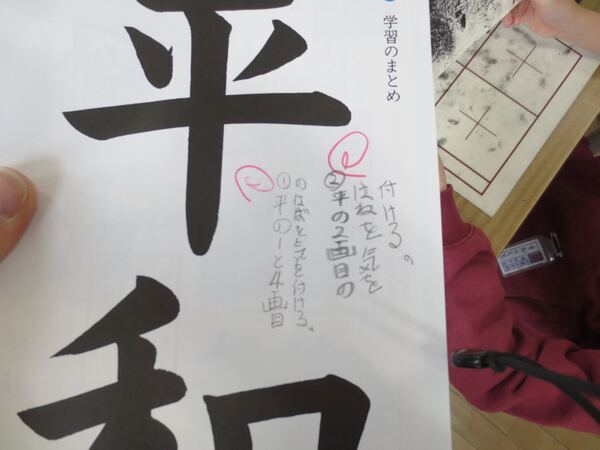 学習のまとめ
平和
①平の1と4画目
のはばを気を付ける。
②平の2画目の
はねを気を
付ける。